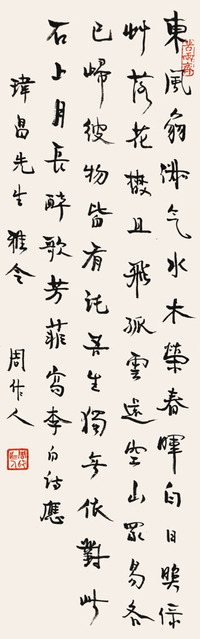 東風扇淑气水木榮春暉白日照綠
艸落花散且飛孤雲還空山眾鳥各
已歸彼物皆有託吾生獨無依對此
石上月長醉歌芳菲寫李白詩應
瑋昌先生雅令
周作人